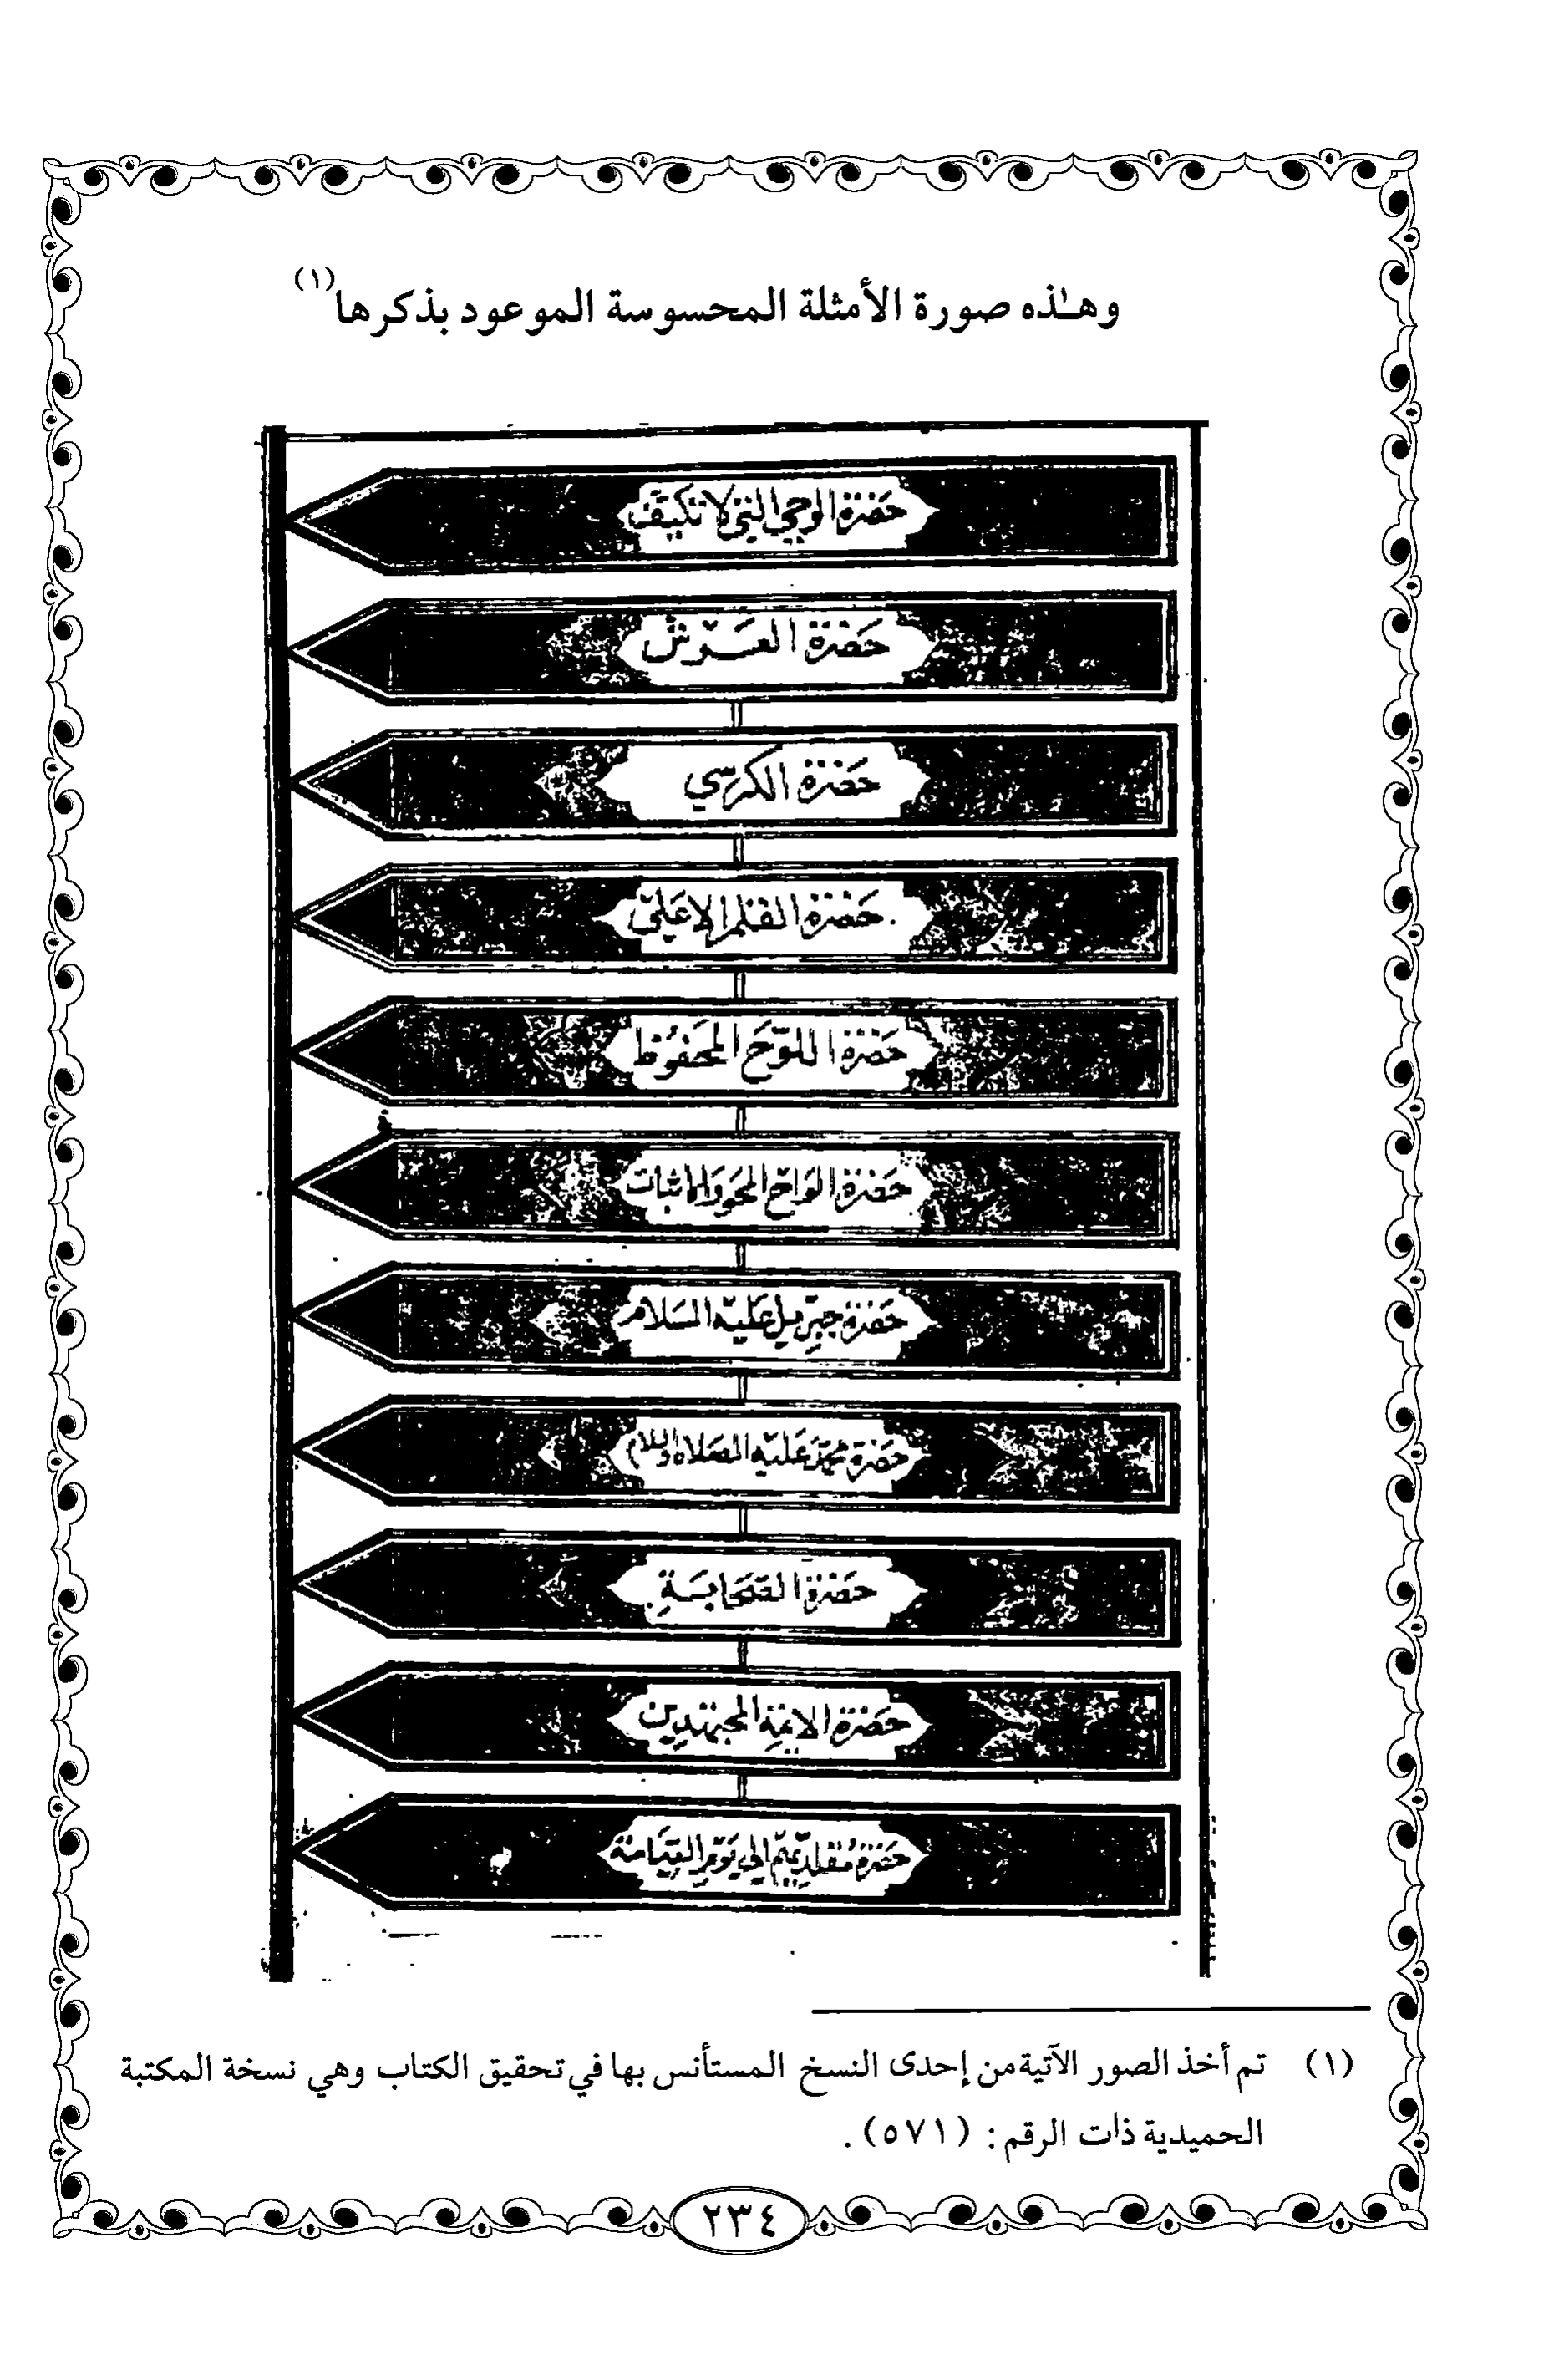 وهـٰذه صورة الأمثلة المحسوسة الموعود بذكرها(١)
حضرة الوحي التي لا تكيف
حضرة العرش
حضرة الكرسي
حضرة القلم الاعلى
حضرة اللوح المحفوظ
حضرة الواح المحو والاثبات
حضرة جبريل عليه السلام
حضرة محمد عليه الصلاة والسلام
حضرة الصحابة
حضرة الائمة المجتهدين
حضرة مقلديهم الى يوم القيامة
(١) تم أخذ الصور الآتية من إحدى النسخ المستأنس بها في تحقيق الكتاب وهي نسخة المكتبة
الحميدية ذات الرقم : (٥٧١) .
٢٣٤